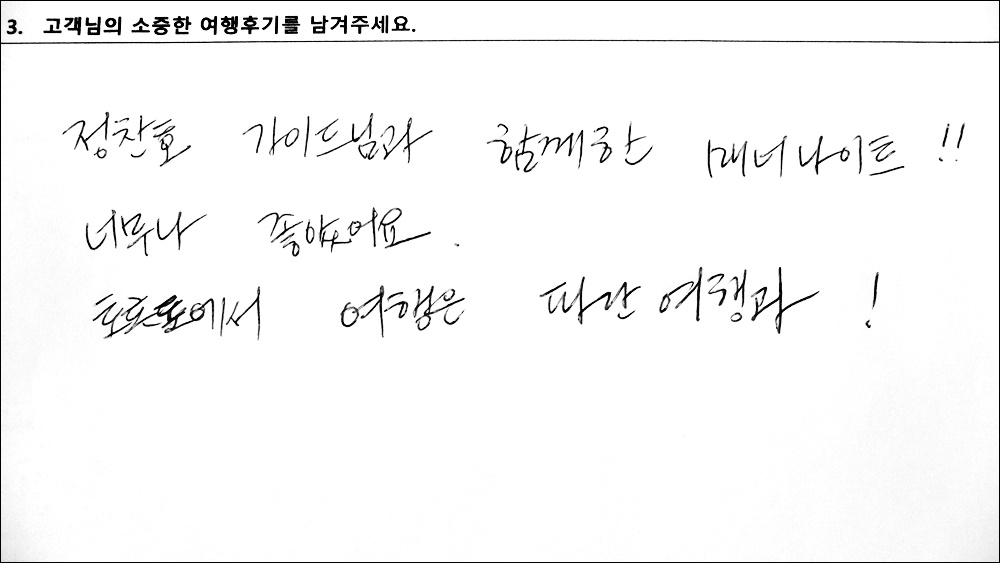 3. 고객님의 소중한 여행후기를 남겨주세요.
정찬호 가이드님과 함께한 매너나이트 !!
너무나 좋았어요.
에서 여행은 파란여행과 !